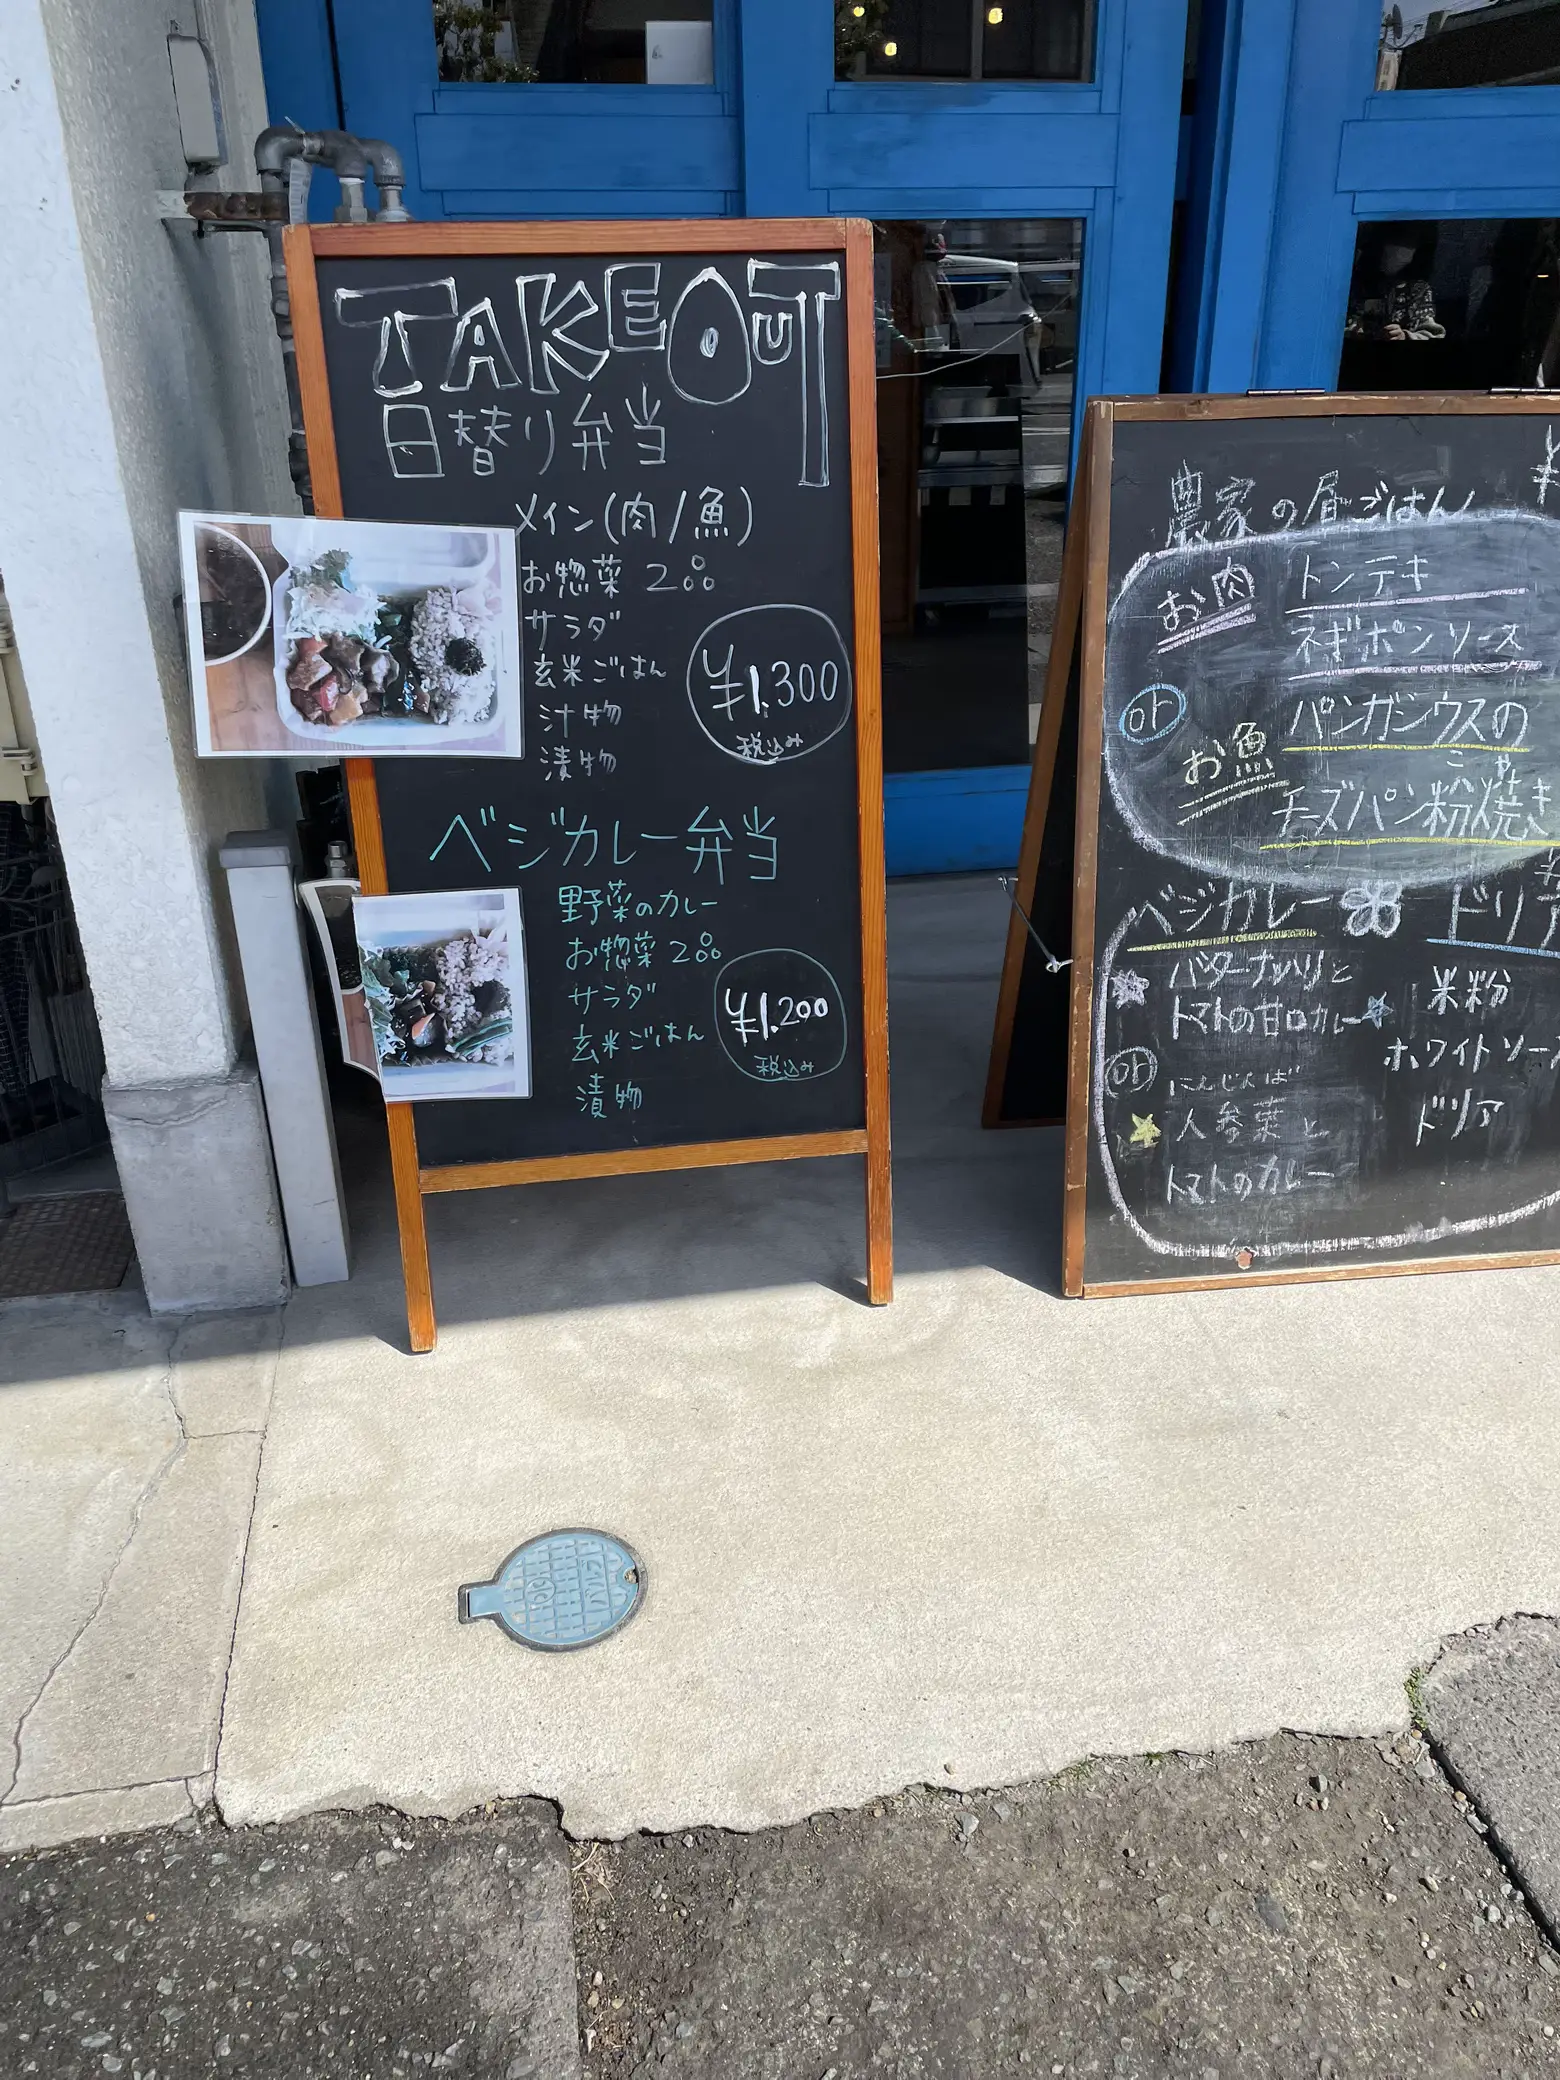 TAKE OUT
日替り弁当
メイン(肉/魚)
お惣菜 2品
サラダ
玄米ごはん
汁物
漬物
¥1,300
税込み
ベジカレー弁当
野菜のカレー
お惣菜 2品
サラダ
玄米ごはん
漬物
¥1,200
税込み
農家の昼ごはん
¥
お肉
トンテキ
ネギポンソース
or
お魚
パンガシウスの
こやき
チーズパン粉焼き
ベジカレー
バターナッツと
トマトの甘口カレー
or
にんじんば
人参葉と
トマトのカレー
¥
ドリア
米粉
ホワイトソース
ドリア
バルブ